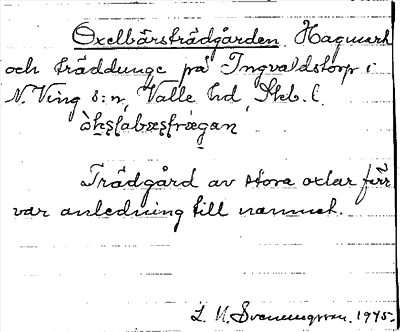 Oxelbärsträdgården. Hagmark
och träddunge på Ingvaldstorp i
N. Ving s:n, Valle hd, Skb. l.

Trädgård av stora oxlar förr
var anledning till namnet.
L. M. Svenungsson. 1945.